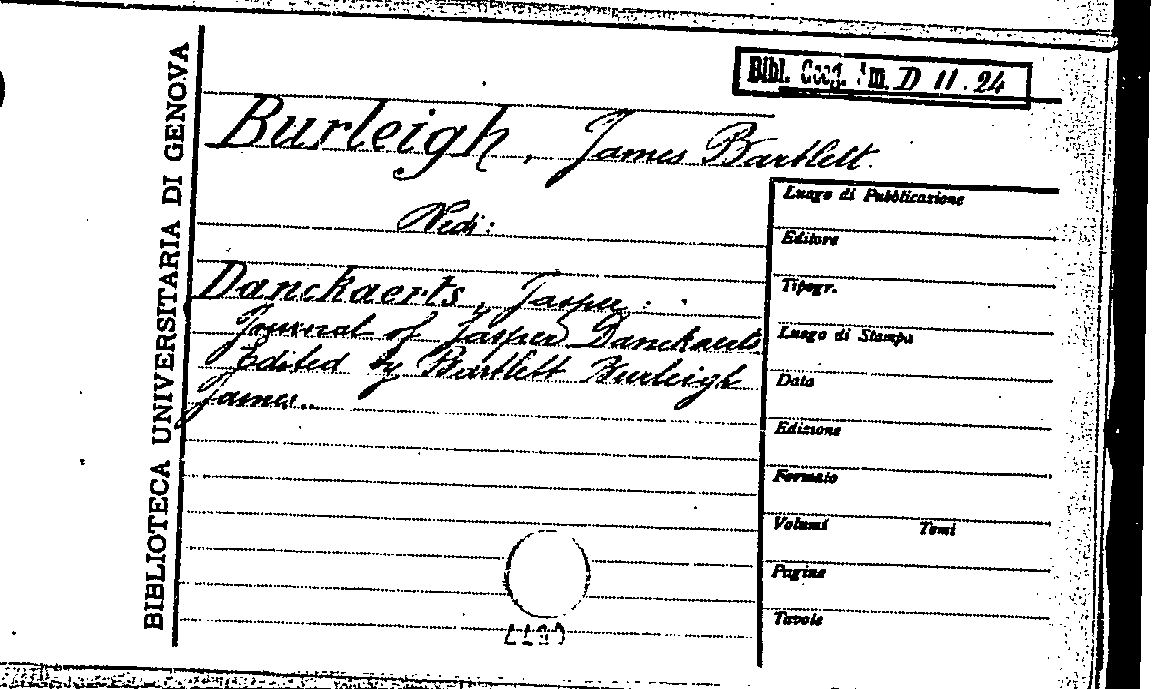 BIBLIOTECA UNIVERSITARIA DI GENOVA
Bibl. Geog. Am. D 11. 24
Burleigh, James Bartlett.
Vedi:
Danckaerts, Jasper:
Journal of Jasper Danckaerts
Edited by Bartlett Burleigh
James..
Luogo di Pubblicazione
Editore
Tipogr.
Luogo di Stampa
Data
Edizione
Formato
Volumi Tomi
Pagine
Tavole